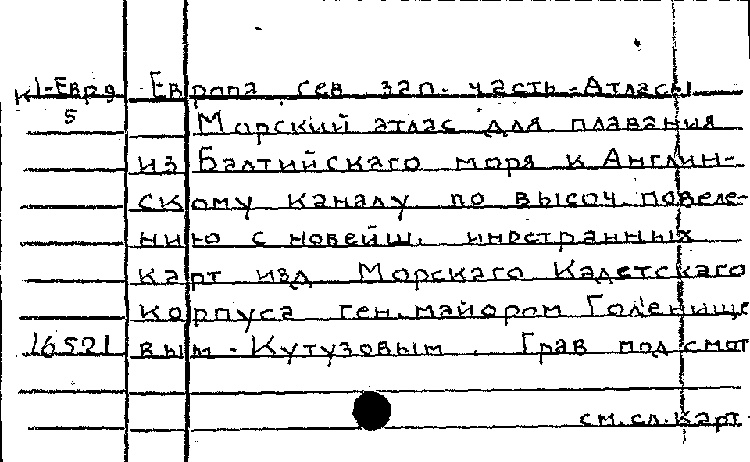 К1-Евр9 Европа, сев. зап. часть-Атласы
5 Морский атлас для плавания
из Балтийскаго моря к Англин-
скому каналу по высоч. повеле-
нию с новейш. иностранных
карт изд Морскаго Кадетскаго
корпуса ген.майором Голенище
16521 вым-Кутузовым. Грав под смот
см.сл.карт